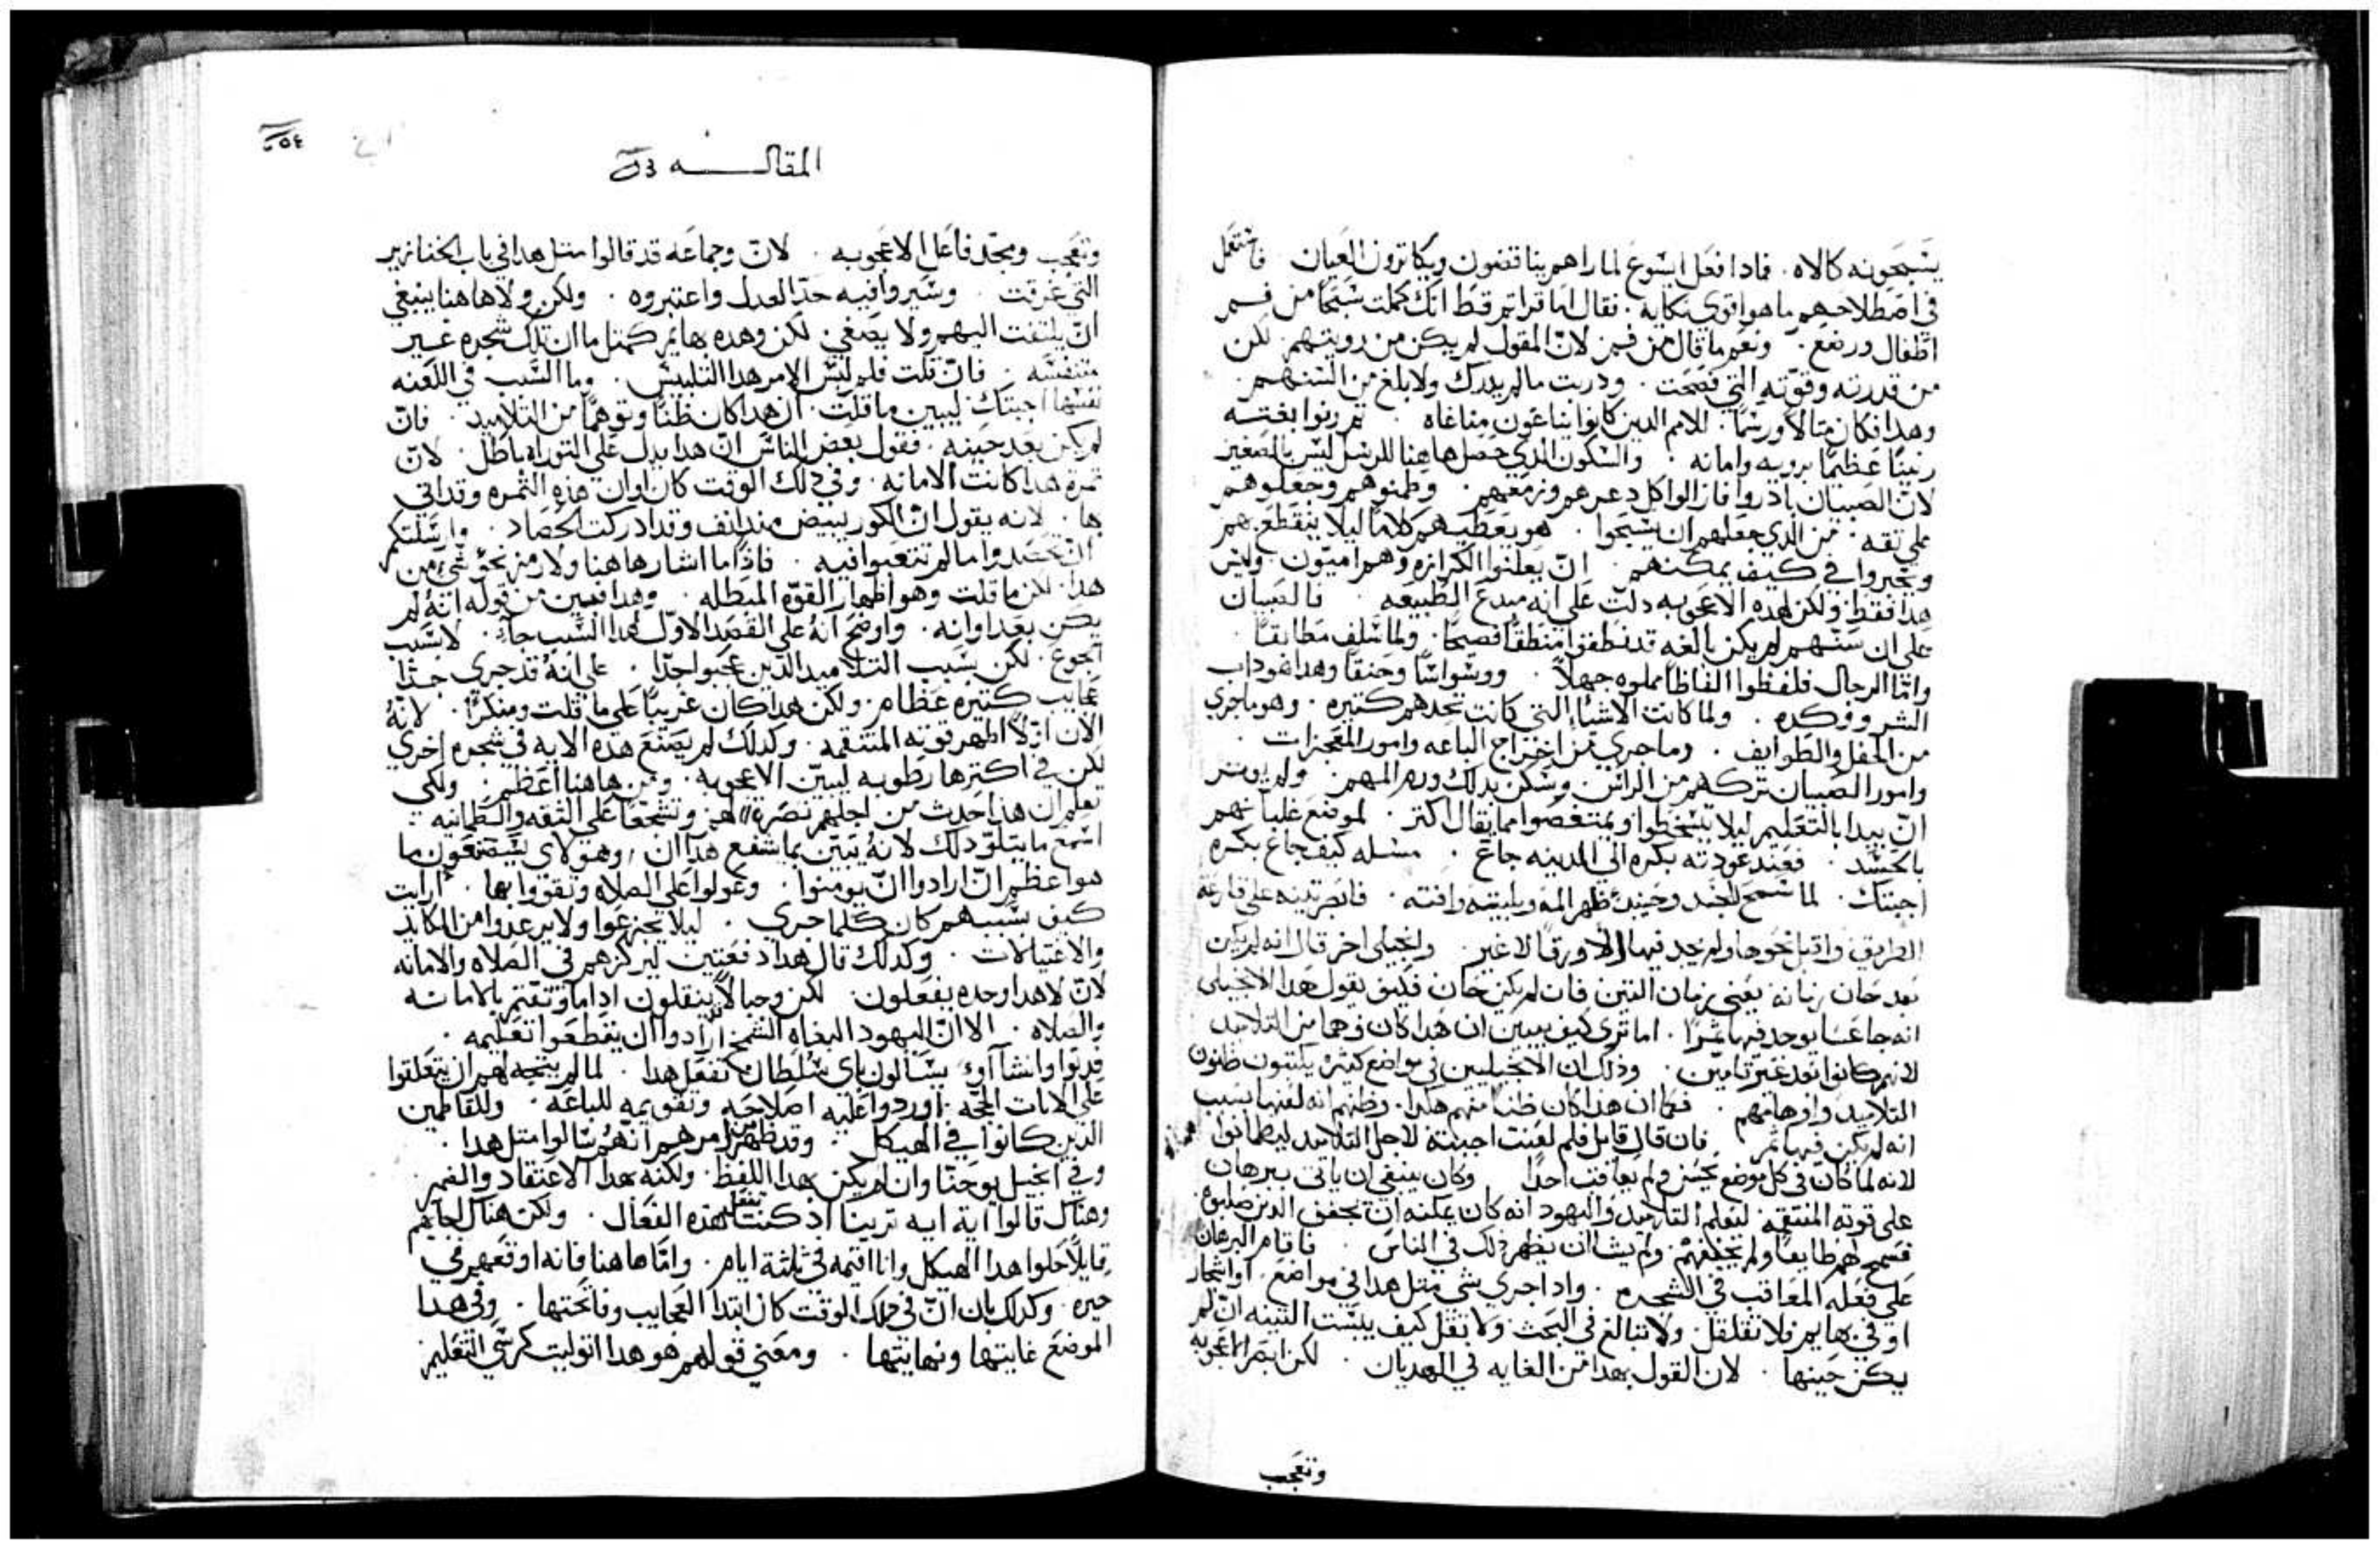 يسبحونه كالاه. فادا فعل ايسوع لما راهم يناقفون ويكاترون العيان فاشتمل
في اصطلاحهم ما هو اقوي نكايه. فقال اما قراتم قط انك كملت سبحًا من فم
اطفال ورضع. ونعم ما قال من فم لان المقول لم يكن من رويتهم لكن
من قدرته وقوته التي فصحت. ودربت ما لم يدرك ولا بلغ من السنهم.
وهدا فكان متالاً ورسمًا. للامم الدين كانوا يناغون مناغاه. تم رنوا بغتسه
رنينًا عظيمًا برويه وامانه. والسكون الدي حصل هاهنا للرسل ليس بالصغير
لان الصبيان بادروا فازالوا كل دعرهم وزمعهم. وطمنوهم وجعلوهم
علي تقه. من الدي جعلهم ان يسبحوا. هو يعطيهم كلامًا ليلا ينقطع بهم
ويحيروا في كيف يمكنهم. ان يعلنوا الكرازه وهم اميون. وليس
هدا فقط ولكن لهده الاعجوبه دلت علي انه مبدع الطبيعه. فالصبيان
علي ان سنهم لم يكن بالغه قد نطقوا منطقًا فصيحًا. ولما سلف مطابقًا.
وامّا الرجال فلفظوا الفاظًا مملوه جهلاً. ووسواسًا وحنقًا وهدا هو داب
الشر ووكده. ولما كانت الاشيا التي كانت تحدهم كتيره. وهو ما جري
من المحفل والطوايف. وما جري من اخراج الباعه وامور المعجزات.
وامور الصبيان تركهم من الراس. وسكن بدلك ورم المهم. ولم يوتر
ان يبدا بالتعليم ليلا يتسخطوا ويمتعصوا مما يقال اكتر. لموضع غليانهم
بالحسد. فعند عودته بكره الي المدينه جاع. مسله كيف جاع بكره
اجبتك. لما سمح للجسد وحينئذ ظهر المه وبليته وافته. فابصر تينه علي قارعه
الطريق واقبل نحوها ولم يجد فيها الا ورقًا لا غير. وانجيلي اخر قال انه لم يكن
بعد حان زمانه يعني زمان التين فان لم يكن حان فكيف يقول هدا الانجيلي
انه جا عسا يوجد فيها ثمرًا. اما تري كيف يبين ان هدا كان وهما من التلاميد
لانهم كانوا بعد غير تامين. ودلك ان الانجيليين في مواضع كثيره يكتبون ظنون
التلاميد واوهامهم. فكما ان هدا كان ظنًا منهم هكدا. وظنهم انه لعنها بسبب
انه لم يكن فيها ثمر فان قال قايل فلم لعنت اجبته لاجل التلاميد ليطمانوا
لانه لما كان في كل موضع يحسن ولم يعاقب احدًا وكان ينبغي ان ياتي ببرهان
علي قوته المنتقمه ليعلم التلاميد واليهود انه كان يمكنه ان يجفف الدين صلبوه
فسمح لهم طايعًا ولم يجففهم ولم يشا ان يظهر دلك في الناس. فاقام البرهان
علي فعله المعاقب في الشجره. وادا جري شي متل هدا في مواضع. او اشجار
او في بهايم فلا تقلقل ولا تبالغ في البحث ولا تقل كيف يبست التينه ان لم
يكن حينها. لان القول بهدا من الغايه في الهديان. لكن ابصر الاعجوبه
وتعجب
٥٤
المقالـــــــه
وتعجب ومجد فاعل الاعجوبه. لان وجماعه قد قالوا متل هدا في باب الخنازير
التي غرقت. وسيروا فيه حد العدل واعتبروه. ولكن ولا هاهنا ينبغي
ان يلتفت اليهم ولا يصغي لكن وهده بهايم كمتل ما ان تلك شجره غير
متنفسه. فان قلت فلم لبس الامر هدا التلبيس. وما السبب في اللعنه
نفسها اجبتك ليبين ما قلت. ان هدا كان ظنًا وتوهمًا من التلاميد. فان
لم يكن بعد حينه. فقول بعض الناس ان هدا يدل علي التوراه باطل. لان
ثمرة هدا كانت الامانه. وفي دلك الوقت كان اوان هده الثمره وقد اتي
بها. لانه يقول ان الكور تبيض مند انف وقد ادركت الحصاد. وارسلتكم
ان تحصدوا ما لم تتعبوا فيه. فادًا ما اشار هاهنا ولا رمز نحو شي من
هدا. لكن ما قلت وهو اظهار القوه المبطله. وهدا فبين من قوله انه لم
يكن بعد اوانه. واوضح انه علي القصد الاول لهدا السبب جا. لا بسبب
الجوع. لكن بسبب التلاميد الدين عجبوا جدًا. علي انه قد جري جدًا
عجايب كتيره عظام. ولكن هدا كان غريبًا علي ما قلت ومنكرًا. لانه
الان اولاً اظهر قوته المنتقمه. وكدلك لم يصنع هده الايه في شجره اخري
لكن في اكترها رطوبه ليبين الاعجوبه. ومن هاهنا اعظم. ولكي
تعلم ان هدا حدث من اجلهم نصره لهم وتشجعًا علي الثقه والطمانينه.
اسمع ما يتلو دلك لانه يتبين بما شفع هدا ان وهولاي يستصنعون ما
هو اعظم ان ارادوا ان يومنوا. وعولوا علي الصلاه وتقووا بها. ارايت
كيف بسببهم كان كلما جري. ليلا يجزعوا ولا يرعدوا من المكايد
والاغتيالات. وكدلك قال هدا دفعتين ليركزهم في الصلاه والامانه
لان لا هدا وحده يفعلون لكن وجبالاً ينقلون اداما وتقتم بالامانه
والصلاه. الا ان اليهود البغاه الشمخ ارادوا ان يقطعوا تعليمه.
فدنوا وانشاوا يسالون باي سلطان تفعل هدا. لما لم يتجه لهم ان يتعلقوا
علي الايات بحجه اوردوا عليه اصلاحه وتقويمه للباعه. وللقاطنين
الدين كانوا في الهيكل. وقد ظهر من امرهم انهم سالوا متل هدا.
وفي انجيل يوحنا وان لم يكن بهدا اللفظ. ولكنه بهدا الاعتقاد والضمير
وهناك قالوا اية ايه ترينا اد كنت تفعل هده الفعال. ولكن هناك اجابهم
قايلاً حلوا هدا الهيكل وانا اقيمه في ثلثة ايام. وامّا هاهنا فانه اوقعهم في
حيره. وكدلك بان ان في دلك الوقت كان ابتدا العجايب وفاتحتها. وفي هدا
الموضع غايتها ونهايتها. ومعني قولهم هو هدا اتوليت كرسي التعليم